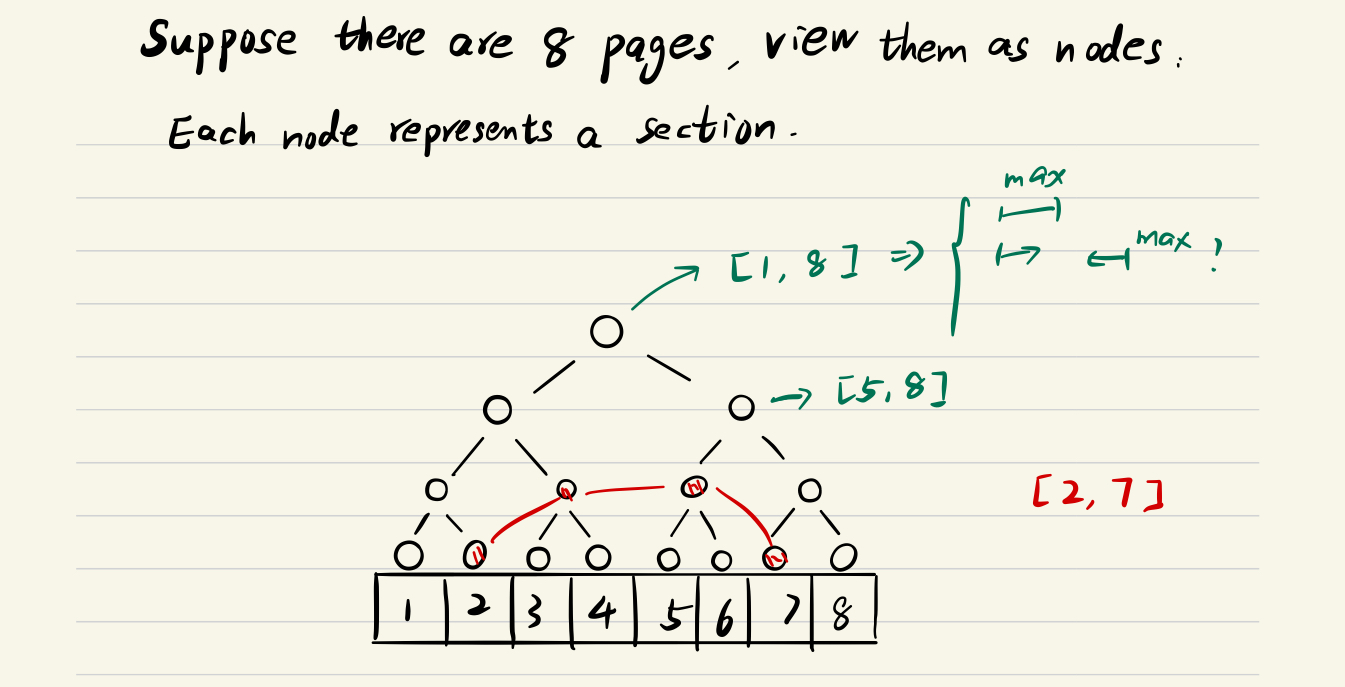 Suppose there are 8 pages, view them as nodes.
Each node represents a section.
max
[1, 8] ⇒ { max ?
→ [5, 8]
[2, 7]
1 2 3 4 5 6 7 8